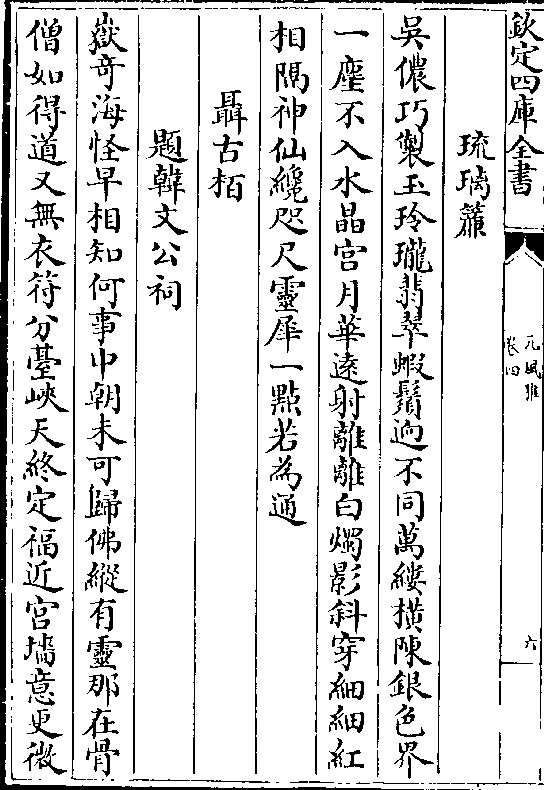 欽定四庫全書
元風雅
卷四
六
琉璃簾
吳儂巧製玉玲瓏翡翠蝦鬚逈不同萬縷橫陳銀色界
一塵不入水晶宮月華遠射離離白燭影斜穿細細紅
相隔神仙纔咫尺靈犀一點若為通
聶古栢
題韓文公祠
嶽竒海怪早相知何事中朝未可歸佛縱有靈那在骨
僧如得道又無衣符分臺峽天終定福近宮墻意更微